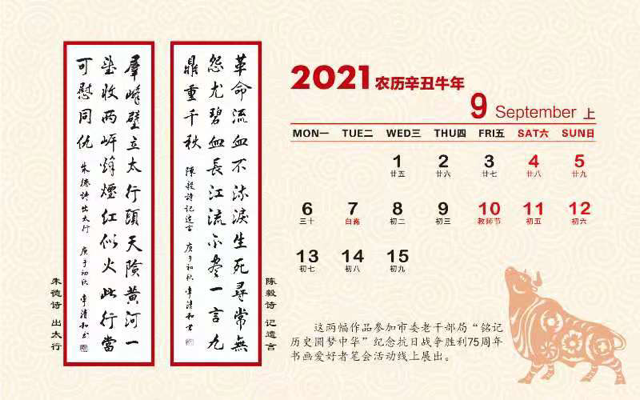 羣峰壁立太行頭天險黄河一
望收两岸烽煙红似火此行當
可慰同仇 朱德詩出太行 庚子初秋 李清和书
朱德诗 出太行
革命流血不流淚生死尋常無
怨尤碧血長江流不盡一言九
鼎重千秋 陳毅詩記遺言 庚子初秋 李清和书
陈毅诗 记遗言
2021 农历辛丑牛年
9 September 上
MON一 TUE二 WED三 THU四 FRI五 SAT六 SUN日
1 2 3 4 5
廿五 廿六 廿七 廿八 廿九
6 7 8 9 10 11 12
三十 白露 初二 初三 教师节 初五 初六
13 14 15
初七 初八 初九
这两幅作品参加市委老干部局“铭记
历史圆梦中华”纪念抗日战争胜利75周年
书画爱好者笔会活动线上展出。